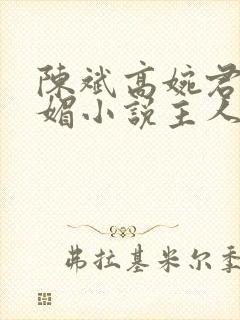 陳斌高婉君
媚小說主人
弗拉基米尔季